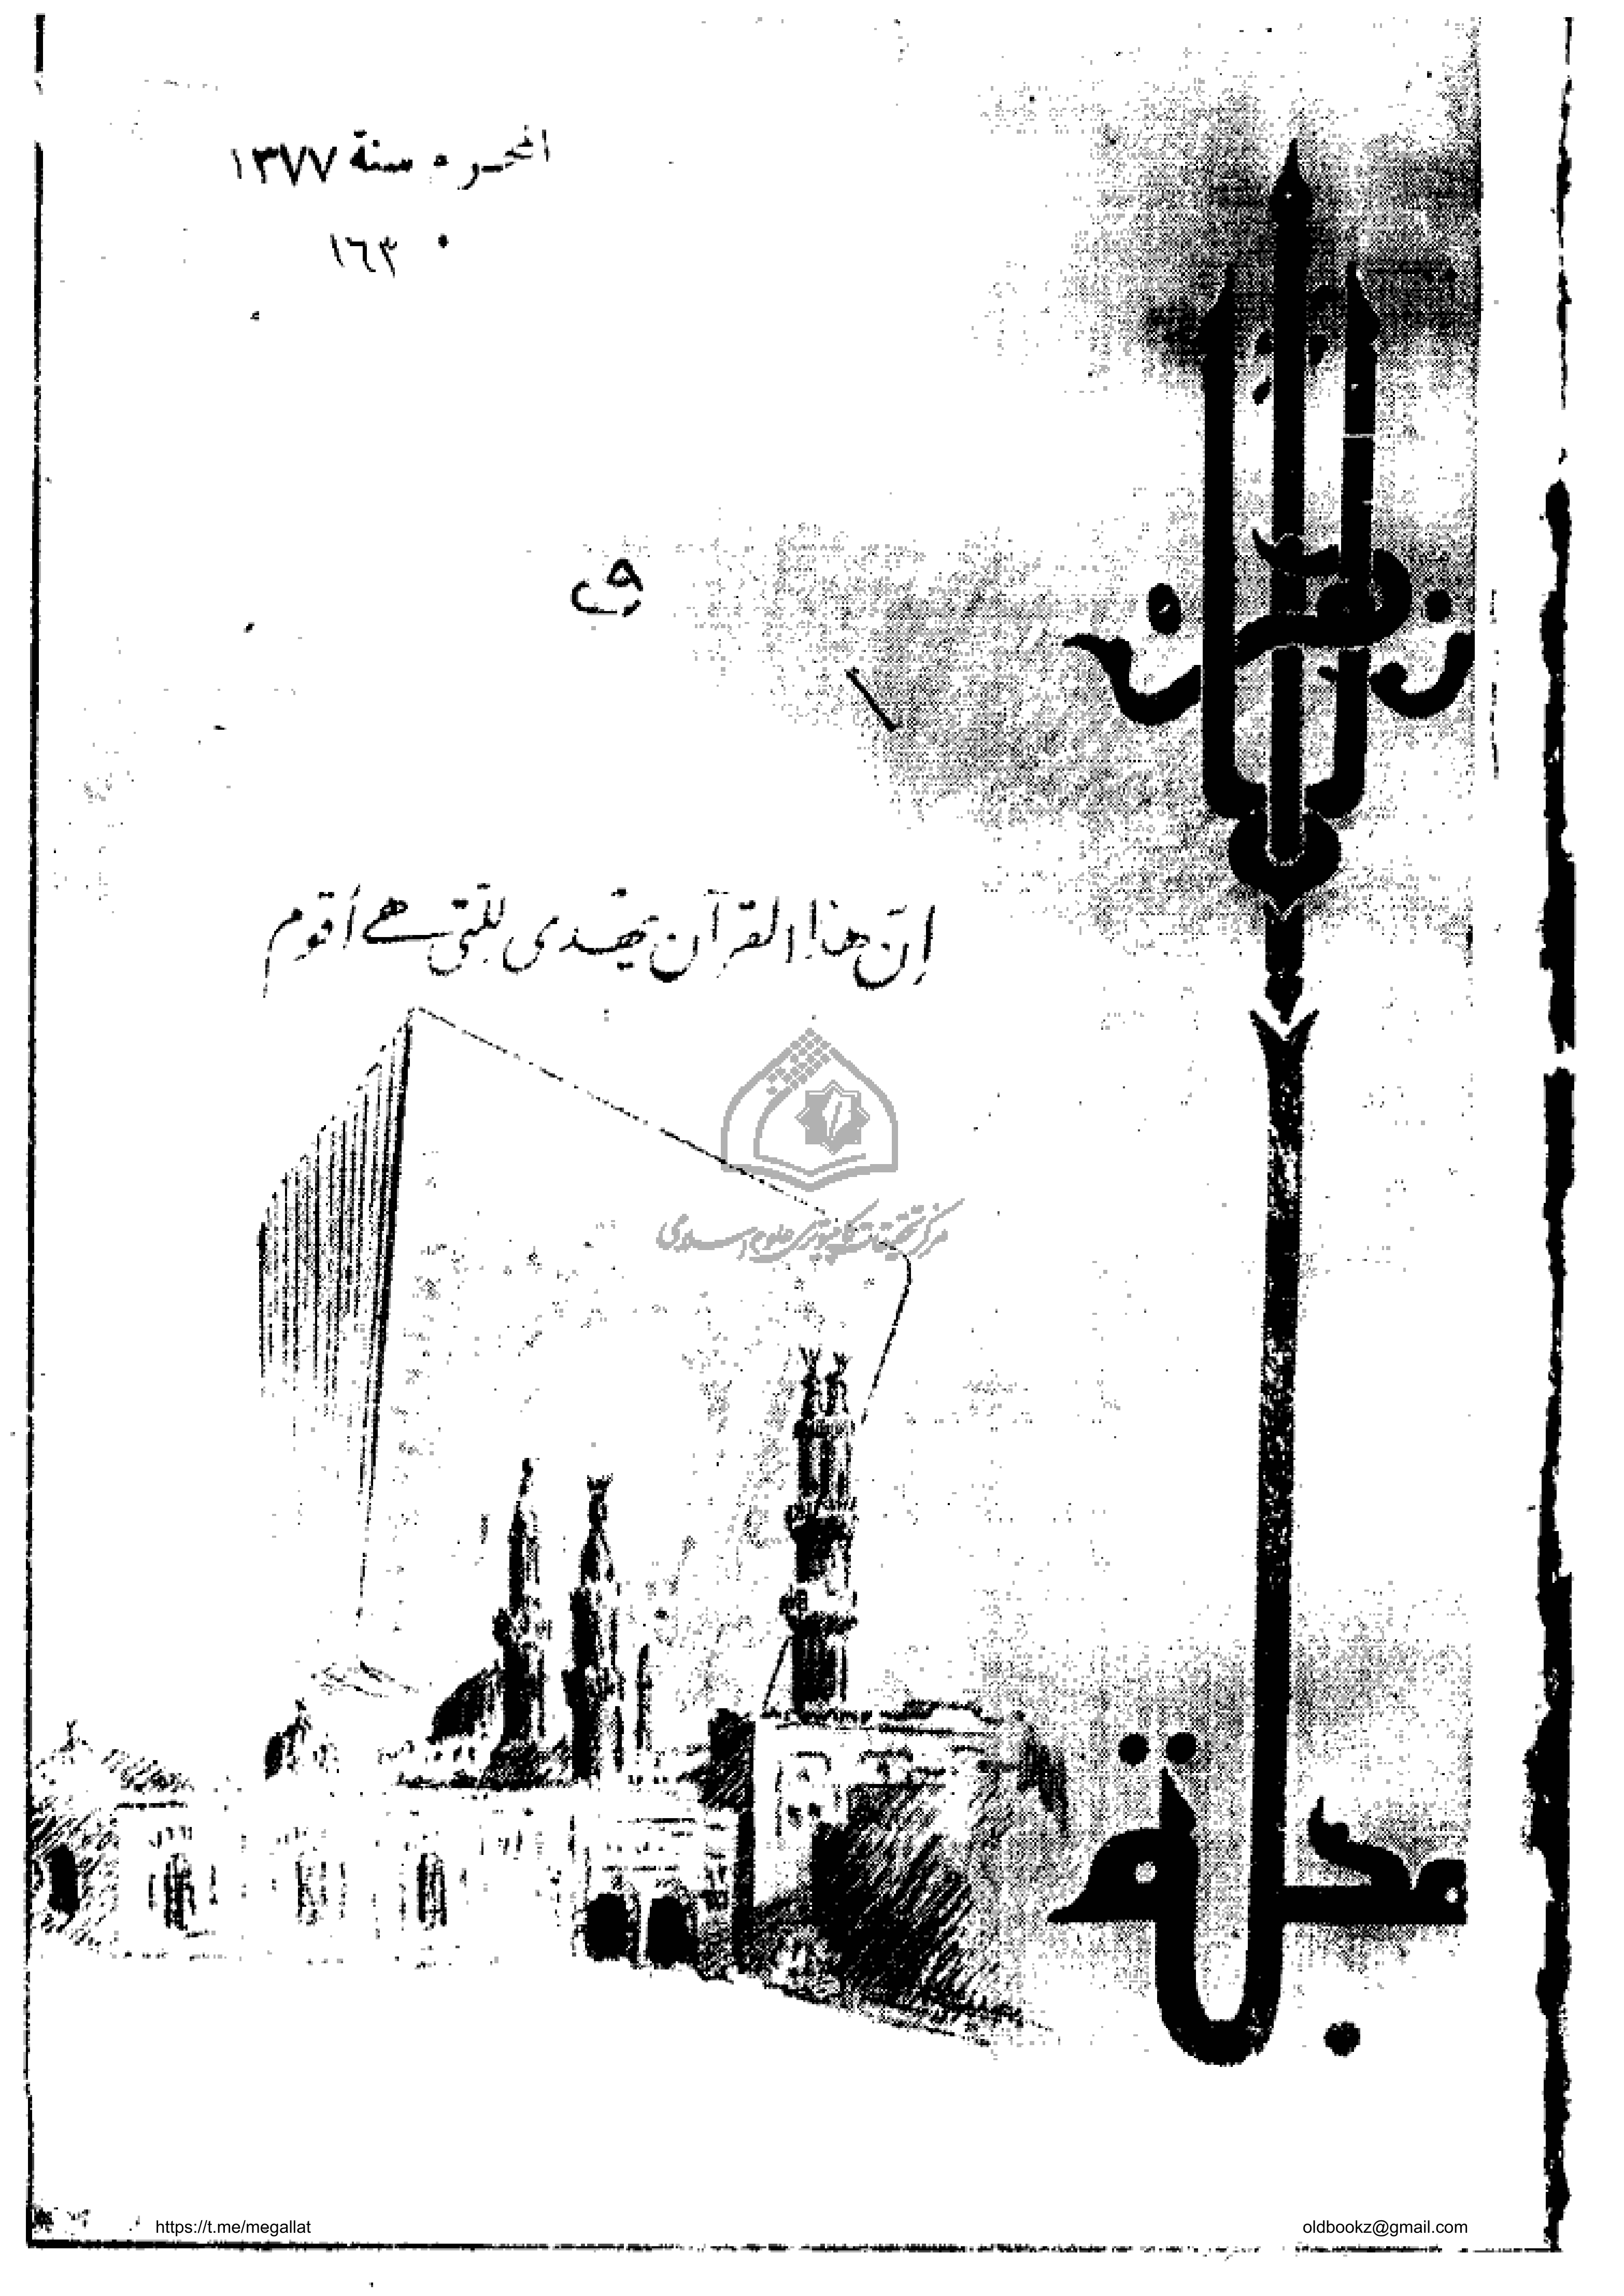 المحرم سنة ١٣٧٧
مجلة الأزهر
إنّ هذا القرآن يهدى للتي هي أقوم
مركز تحقيقات كامپيوترى علوم اسلامى
https://t.me/megallat
oldbookz@gmail.com